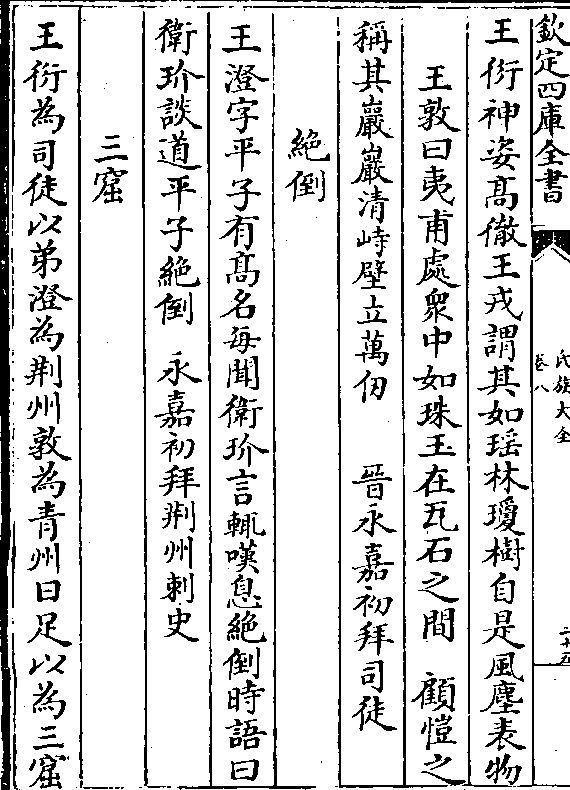 欽定四庫全書
氏族大全
卷八
二十五
王衍神姿髙徹王戎謂其如瑶林瓊樹自是風塵表物
王敦曰夷甫處衆中如珠玉在瓦石之間　顧愷之
稱其巖巖清峙壁立萬仞　晉永嘉初拜司徒
絶倒
王澄字平子有髙名每聞衛玠言輒嘆息絶倒時語曰
衛玠談道平子絶倒　永嘉初拜荆州刺史
三窟
王衍為司徒以弟澄為荆州敦為青州曰足以為三窟